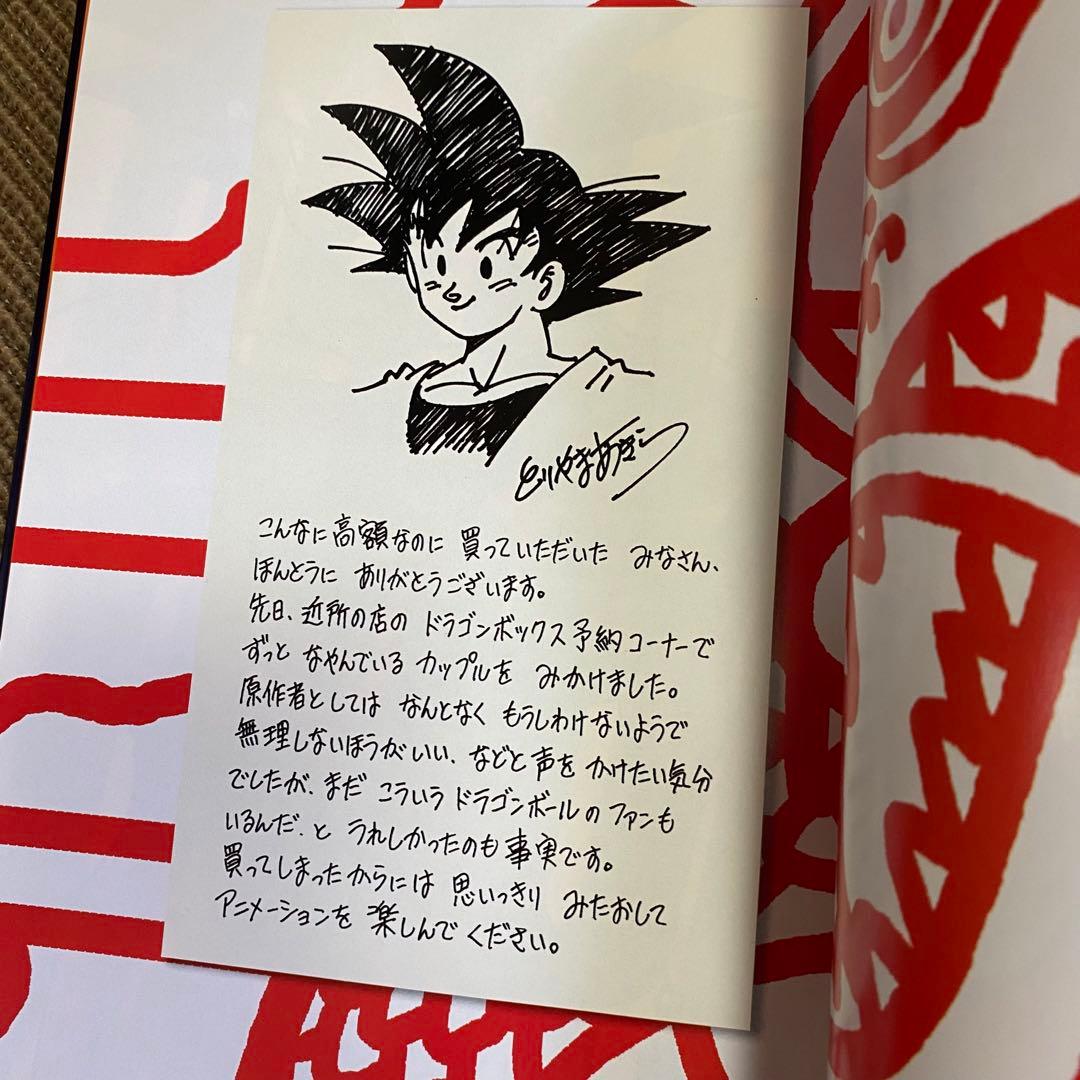 とりやまあきら
こんなに高額なのに 買っていただいた みなさん、
ほんとうに ありがとうございます。
先日、近所の店の ドラゴンボックス予納コーナーで
ずっと なやんでいる カップルを みかけました。
原作者としては なんとなく もうしわけないようで
無理しないほうがいい、などと声を かけたい気分
でしたが、まだ こういう ドラゴンボールの ファンも
いるんだ、と うれしかったのも 事実です。
買ってしまったからには 思いっきり みたおして
アニメーションを 楽しんで ください。